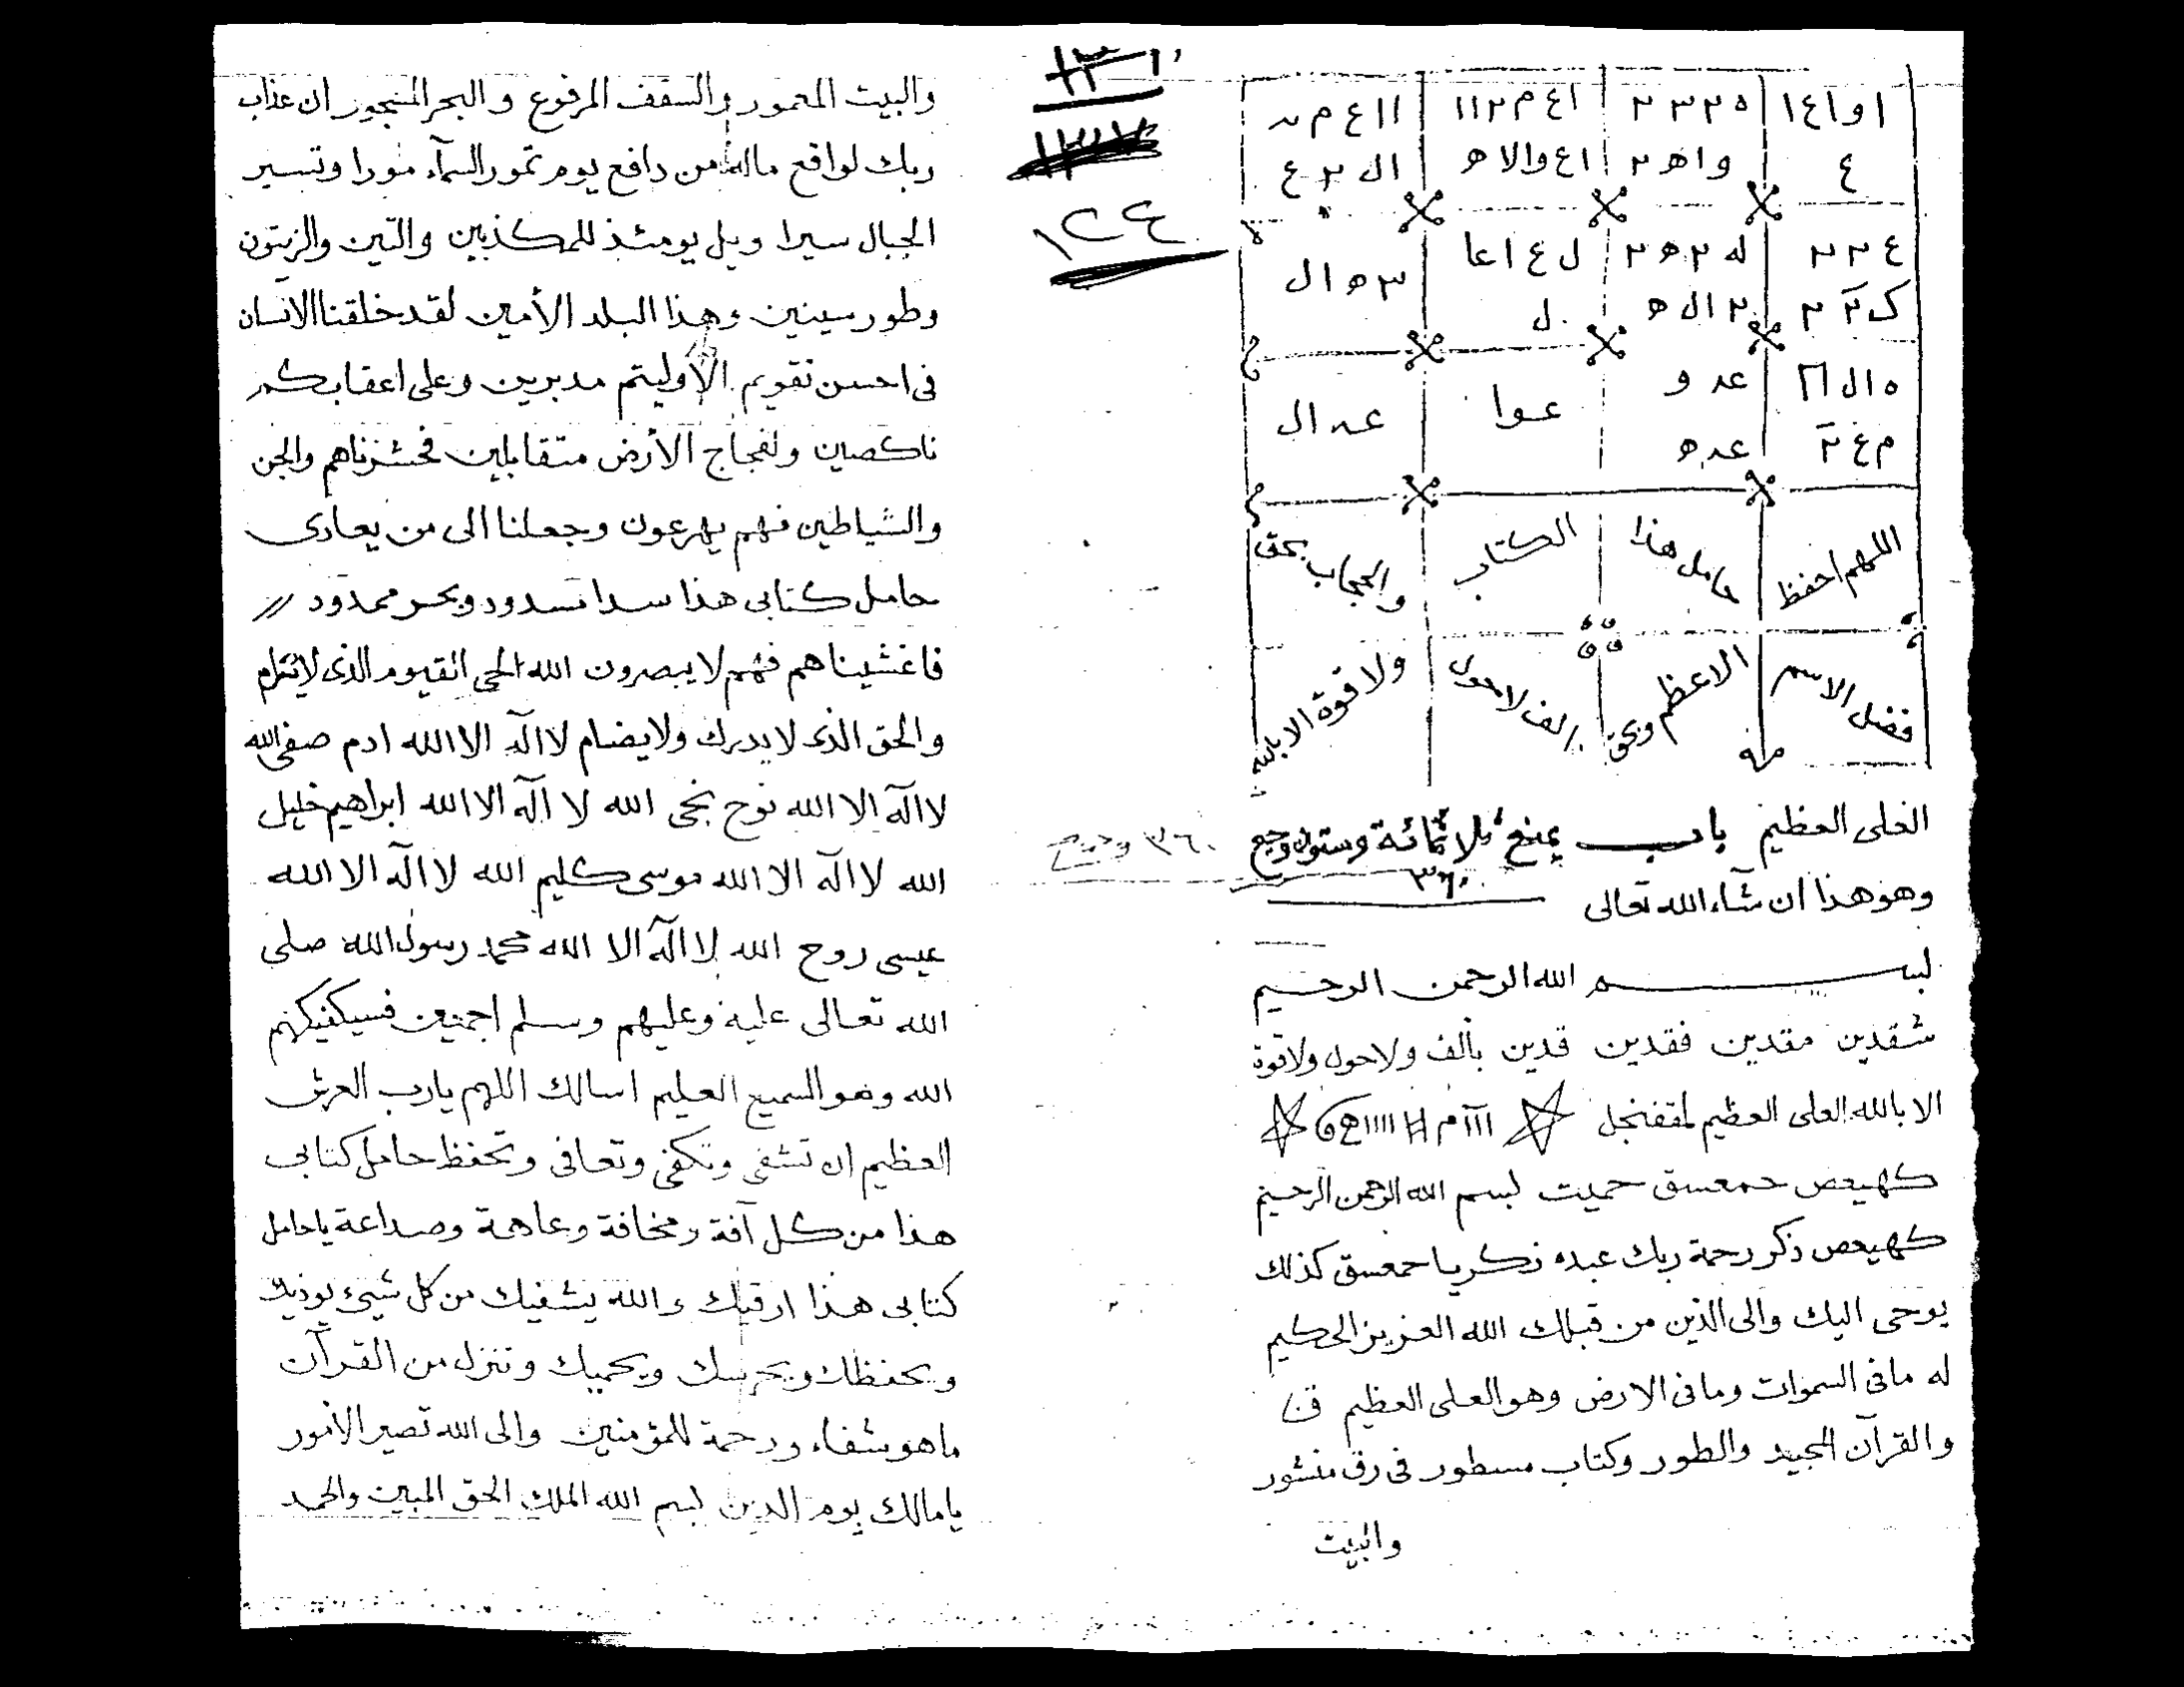 ا و ا ٤ ١ | ٥ ٢ ٣ ٢ | ا ع م ٢ ا ا | ا ا ع م ٮ
ع | و ا ھ ٢ | ا ع و ا لا ھ | ا ل ٢ ع
ع ٢ ٢ | له ٢ ھ ٢ | ل ع ا عا | ٣ ھ ا ل
ك ٢ ٢ | ٢ ا ل ھ | ل
ه ا ل | عد و | عوا | عد ا ل
م ع ٢ | عد ه
اللهم احفظ | حامل هذا | الكتاب | والحجاب بحق
فضل الاسم | الاعظم وبحق | الف لا حول | ولا قوة الا بالله
العلى العظيم باب يمنع ثلاثمائة وستون وجع
٣٦٠
وهو هذا ان شآء الله تعالى
بسم الله الرحمن الرحيم
شقدين مقدين فقدين قدين بالف ولا حول ولا قوة
الا بالله العلى العظيم
كهيعص حمعسق حميت بسم الله الرحمن الرحيم
كهيعص ذكر رحمة ربك عبده زكريا حمعسق كذلك
يوحى اليك والى الذين من قبلك الله العزيز الحكيم
له مافى السموات ومافى الارض وهو العلى العظيم ق
والقرآن المجيد والطور وكتاب مسطور فى رق منشور
والبيت
١٣
١٢٤
٣٦٠ وجع
والبيت المعمور والسقف المرفوع والبحر المسجور ان عذاب
ربك لواقع ماله من دافع يوم تمور السمآء مورا وتسير
الجبال سيرا ويل يومئذ للمكذبين والتين والزيتون
وطور سينين وهذا البلد الأمين لقد خلقنا الانسان
فى احسن تقويم الا وليتم مدبرين وعلى اعقابكم
ناكصين ولفجاج الأرض متقابلين فحشرناهم والجن
والشياطين فهم يهرعون وجعلنا الى من يعادى
حامل كتابى هذا سدا مسدود وبحر ممدود
فاغشيناهم فهم لا يبصرون الله الحى القيوم الذى لا ينام
والحق الذى لا يدرك ولا يضام لا اله الا الله ادم صفى الله
لا اله الا الله نوح نجى الله لا اله الا الله ابراهيم خليل
الله لا اله الا الله موسى كليم الله لا اله الا الله
عيسى روح الله لا اله الا الله محمد رسول الله صلى
الله تعالى عليه وعليهم وسلم اجمعين فسيكفيكهم
الله وهو السميع العليم اسالك اللهم يا رب العرش
العظيم ان تشفى وتكفى وتعافى وتحفظ حامل كتابى
هذا من كل آفة ومخافة وعاهة وصداعة يا حامل
كتابى هذا ارقيك والله يشفيك من كل شيئ يوذيك
ويحفظك ويحرسك ويحميك وننزل من القرآن
ما هو شفاء ورحمة للمؤمنين والى الله تصير الأمور
يا مالك يوم الدين بسم الله الملك الحق المبين والحمد